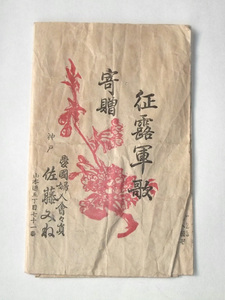 征露軍歌
寄贈
神戸
愛國婦人會々員
佐藤みね
山本通五丁目七十一番